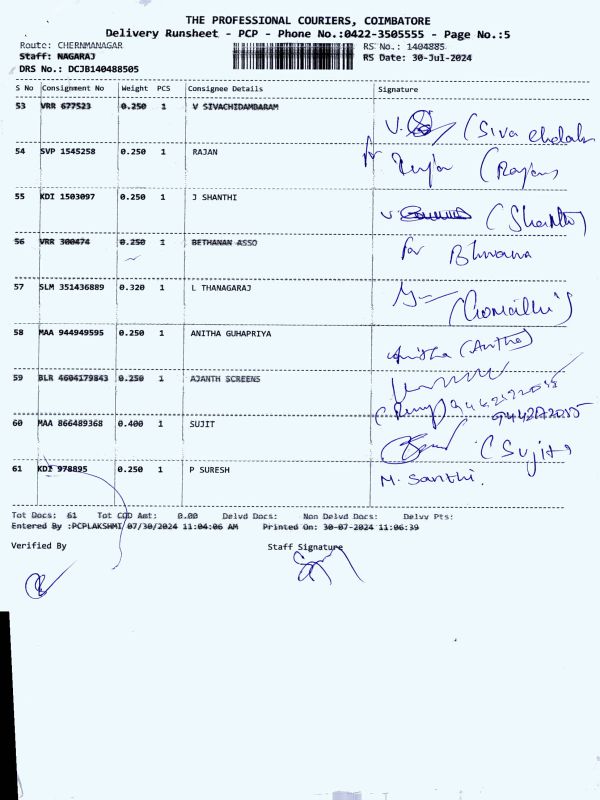 THE PROFESSIONAL COURIERS, COIMBATORE
Delivery Runsheet - PCP - Phone No.:0422-3505555 - Page No.:5
Route: CHERNMANAGAR RS No.: 1404885
Staff: NAGARAJ RS Date: 30-Jul-2024
DRS No.: DCJB140488505
S No Consignment No Weight PCS Consignee Details Signature
53 VRR 677523 0.250 1 V SIVACHIDAMBARAM
V. (Siva
54 SVP 1545258 0.250 1 RAJAN
55 KDI 1503097 0.250 1 J SHANTHI
(Shanthi)
56 VRR 300474 0.250 1 BETHANAN ASSO
for
57 SLM 351436889 0.320 1 L THANAGARAJ
58 MAA 944949595 0.250 1 ANITHA GUHAPRIYA
Anitha (Anitha)
59 BLR 4604179843 0.250 1 AJANTH SCREENS
60 MAA 866489368 0.400 1 SUJIT
(Sujit)
61 KDI 978895 0.250 1 P SURESH
M. Santhi.
Tot Docs: 61 Tot COD Amt: 0.00 Delvd Docs: Non Delvd Docs: Delvy Pts:
Entered By :PCPLAKSHMI/07/30/2024 11:04:06 AM Printed On: 30-07-2024 11:06:39
Verified By Staff Signature